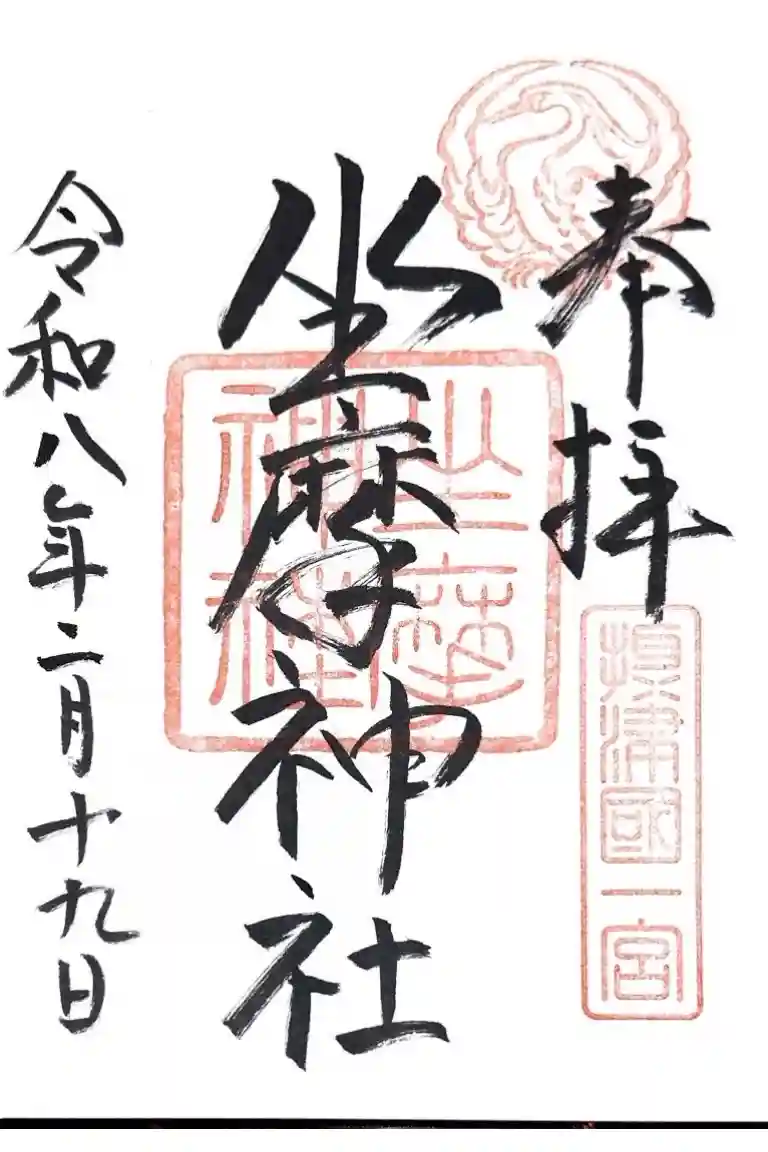 奉拝
攝津國一宮
坐摩神社
坐摩神社
令和八年二月十九日